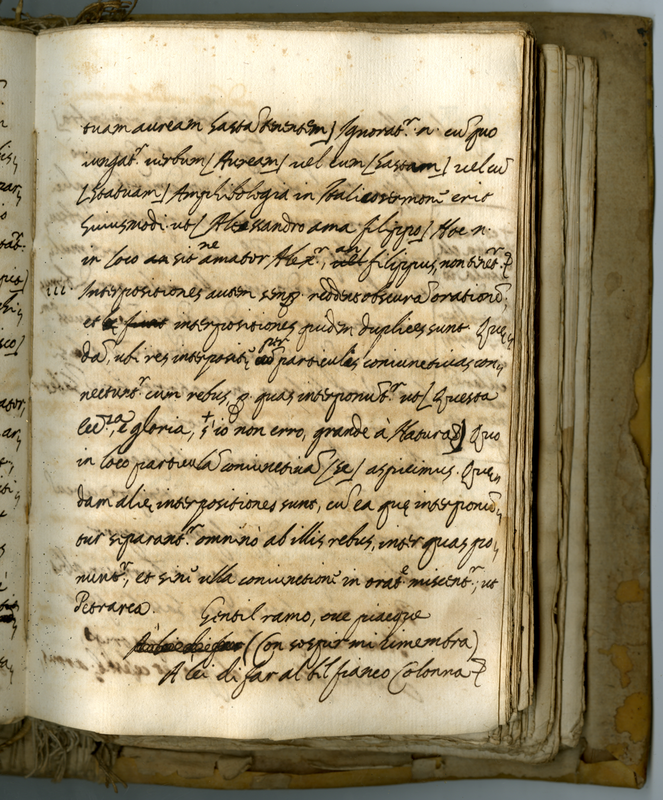 tuam auream hasta tenentem] Ignorat.r n. cū quo
iungat.r verbum [Auream] vel cum [hastam] vel cū
[statuam] Amphibologia in Italico sermone erit
huiusmodi ut [Alessandro ama filippo] Hoc n.
in loco an sit ne amator Alex.r, an filippus, non tenet.r
iii. Interpositiones autem semp. reddunt obscurā orationē,
et interpositiones quidem duplices sunt. Quę
dā, ubi res interposite per particulas coniunctivas con
nectunt.r cum rebus, p. quas interponūt.r ut [Questa
è gloria, s'io non erro, grande à Natura] Quo
in loco particulā coniunctivā [se] aspicimus. Quę
dam alię interpositiones sunt, cū ea quę interponū
tur separant.r omnino ab illis rebus, inter quas po
nunt.r, et sine ulla coniunctione in orat.e miscent.r, ut
Petrarca Gentil ramo, ove piacque
(Con sospir mi rimembra)
A lei di far al bel fianco Colonna